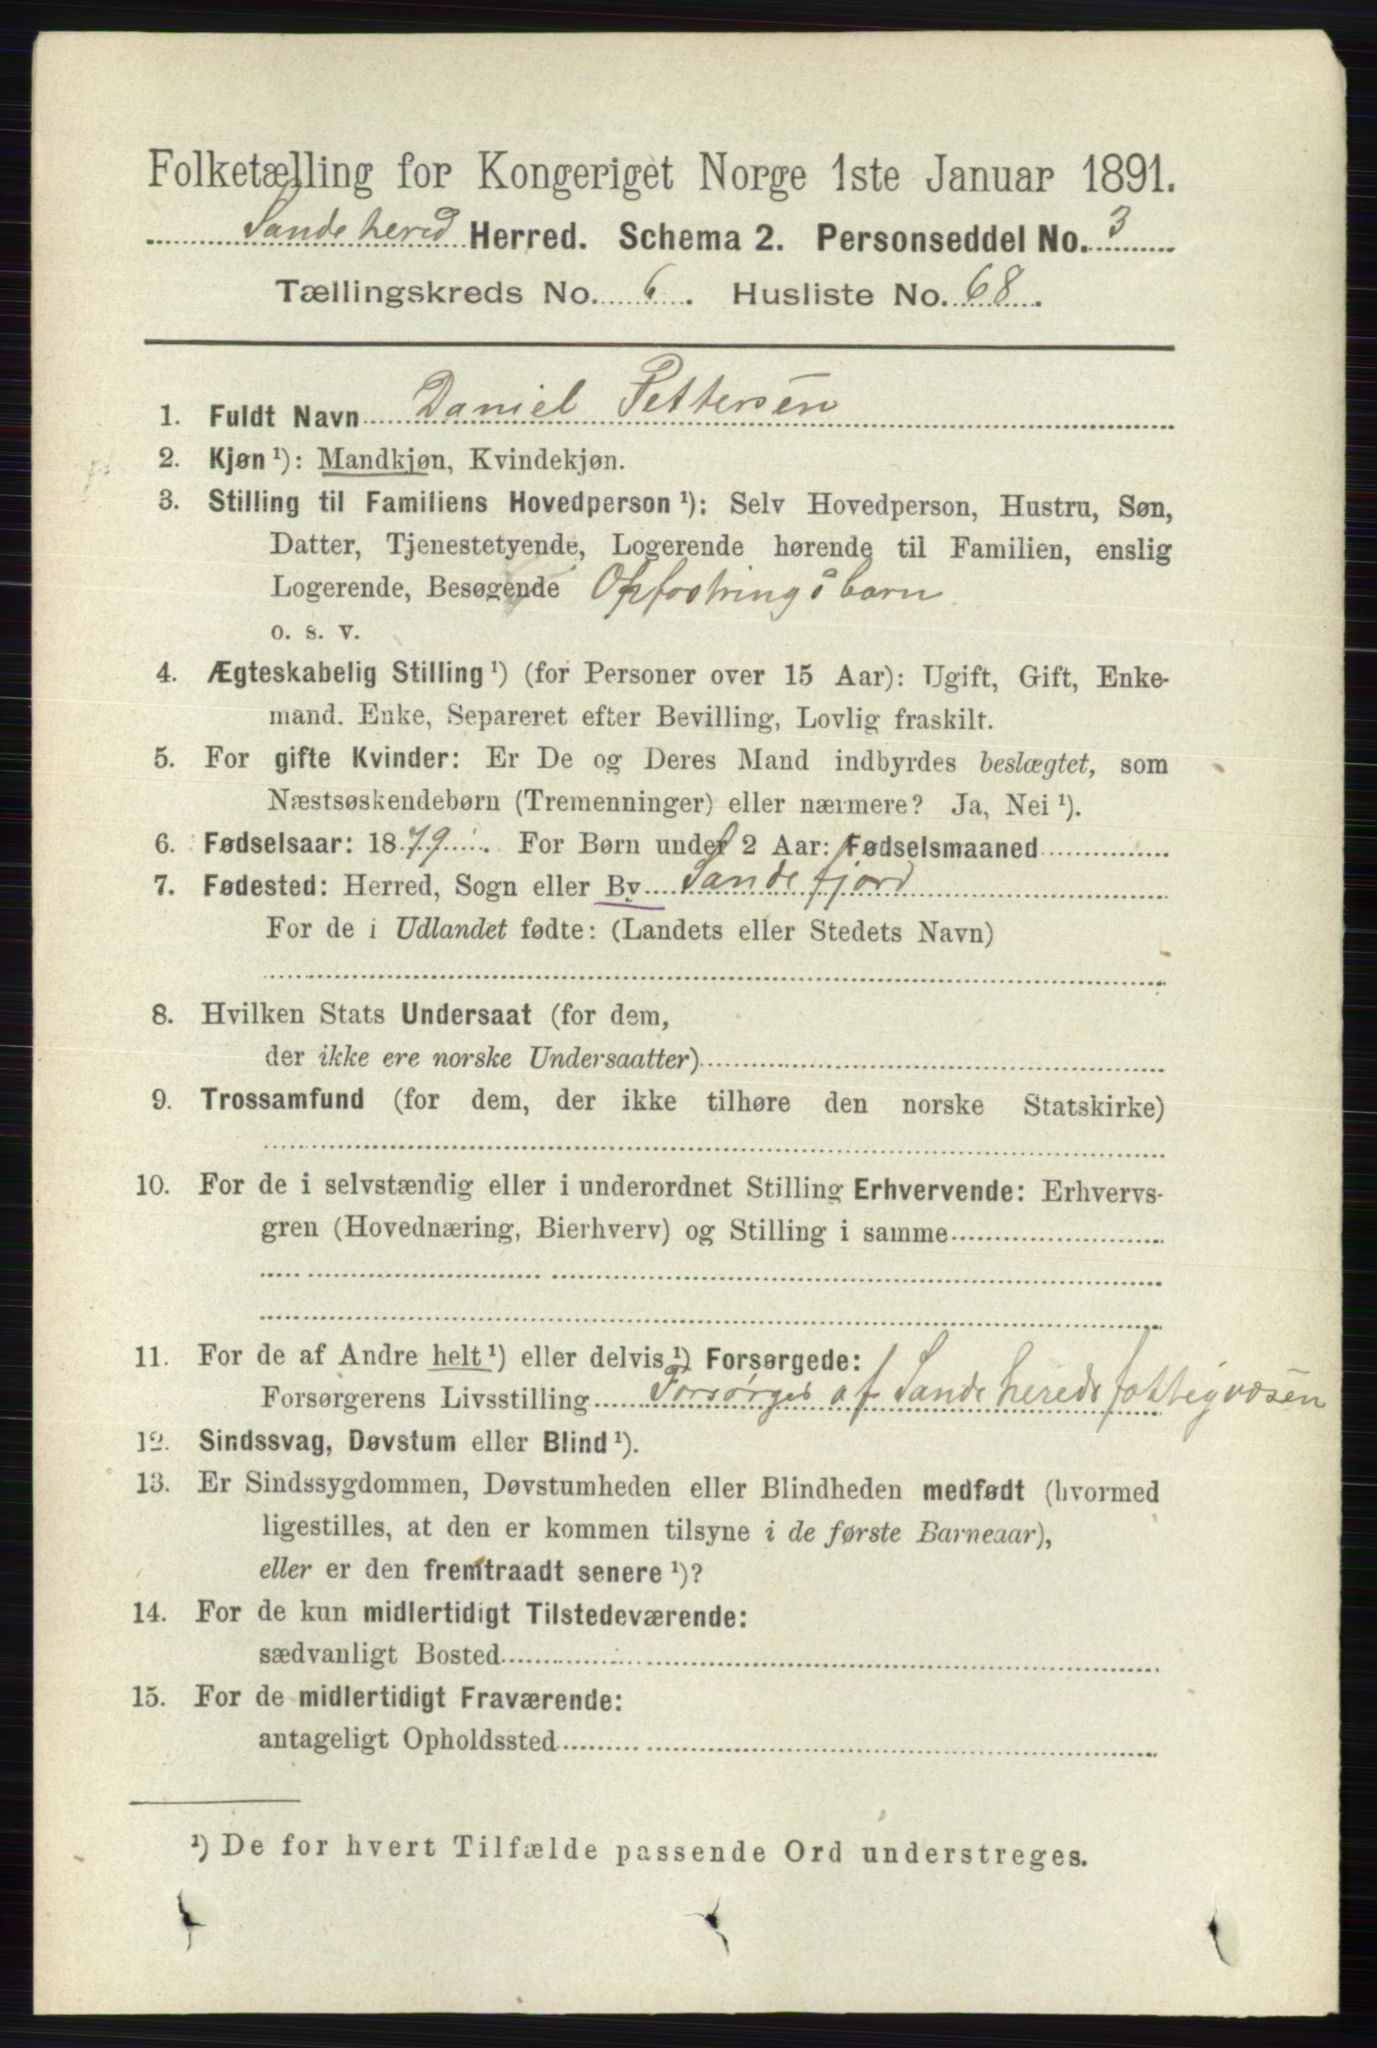 Folketælling for Kongeriget Norge 1ste Januar 1891.
Sandeherred Herred. Schema 2. Personseddel No. 3
Tællingskreds No. 6. Husliste No. 68.
1. Fuldt Navn Daniel Pettersen
2. Kjøn ¹): Mandkjøn, Kvindekjøn.
3. Stilling til Familiens Hovedperson ¹): Selv Hovedperson, Hustru, Søn,
Datter, Tjenestetyende, Logerende hørende til Familien, enslig
Logerende, Besøgende Opfostringsbarn
o. s. v.
4. Ægteskabelig Stilling ¹) (for Personer over 15 Aar): Ugift, Gift, Enke-
mand. Enke, Separeret efter Bevilling, Lovlig fraskilt.
5. For gifte Kvinder: Er De og Deres Mand indbyrdes beslægtet, som
Næstsøskendebørn (Tremenninger) eller nærmere? Ja, Nei ¹).
6. Fødselsaar: 1879. For Børn under 2 Aar: Fødselsmaaned
7. Fødested: Herred, Sogn eller By Sandefjord
For de i Udlandet fødte: (Landets eller Stedets Navn)
8. Hvilken Stats Undersaat (for dem,
der ikke ere norske Undersaatter)
9. Trossamfund (for dem, der ikke tilhøre den norske Statskirke)
10. For de i selvstændig eller i underordnet Stilling Erhvervende: Erhvervs-
gren (Hovednæring, Bierhverv) og Stilling i samme
11. For de af Andre helt ¹) eller delvis ¹) Forsørgede:
Forsørgerens Livsstilling Forsørges af Sandehereds fattigvæsen
12. Sindssvag, Døvstum eller Blind ¹).
13. Er Sindssygdommen, Døvstumheden eller Blindheden medfødt (hvormed
ligestilles, at den er kommen tilsyne i de første Barneaar),
eller er den fremtraadt senere ¹)?
14. For de kun midlertidigt Tilstedeværende:
sædvanligt Bosted
15. For de midlertidigt Fraværende:
antageligt Opholdssted
¹) De for hvert Tilfælde passende Ord understreges.